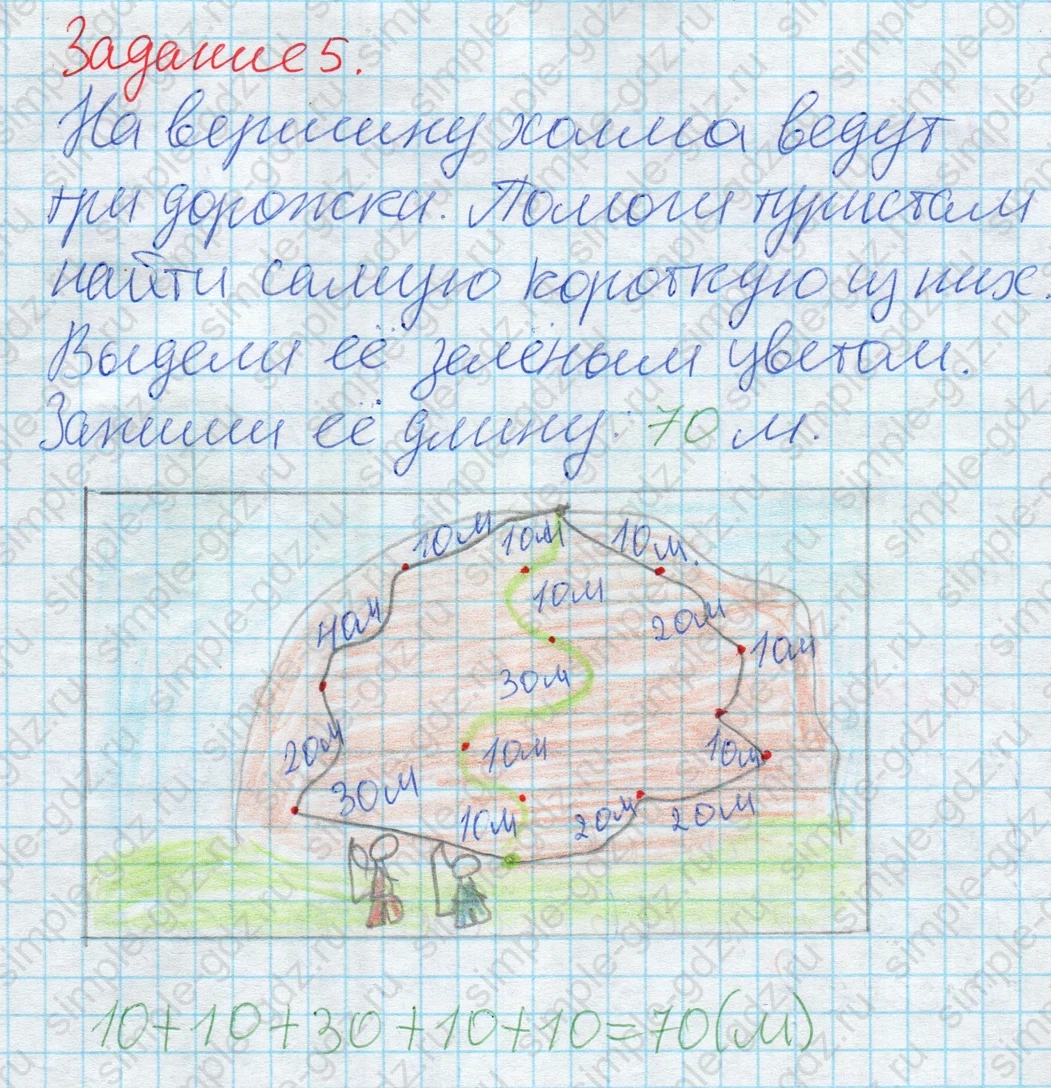 Задание 5.
На вершину холма ведут
три дорожки. Помоги туристам
найти самую короткую из них.
Выдели её зелёным цветом.
Запиши её длину: 70 м.
10м 10м 10м.
10м
40м 20м
10м
30м
20м 10м 10м
30м
10м 20м 20м
10+10+30+10+10=70(м)
simple-gdz.ru